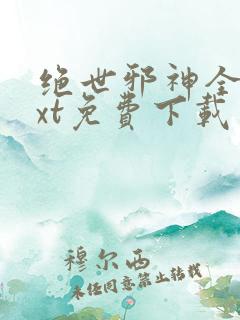 绝世邪神全
xt免费下载
穆尔西
未经同意禁止转载